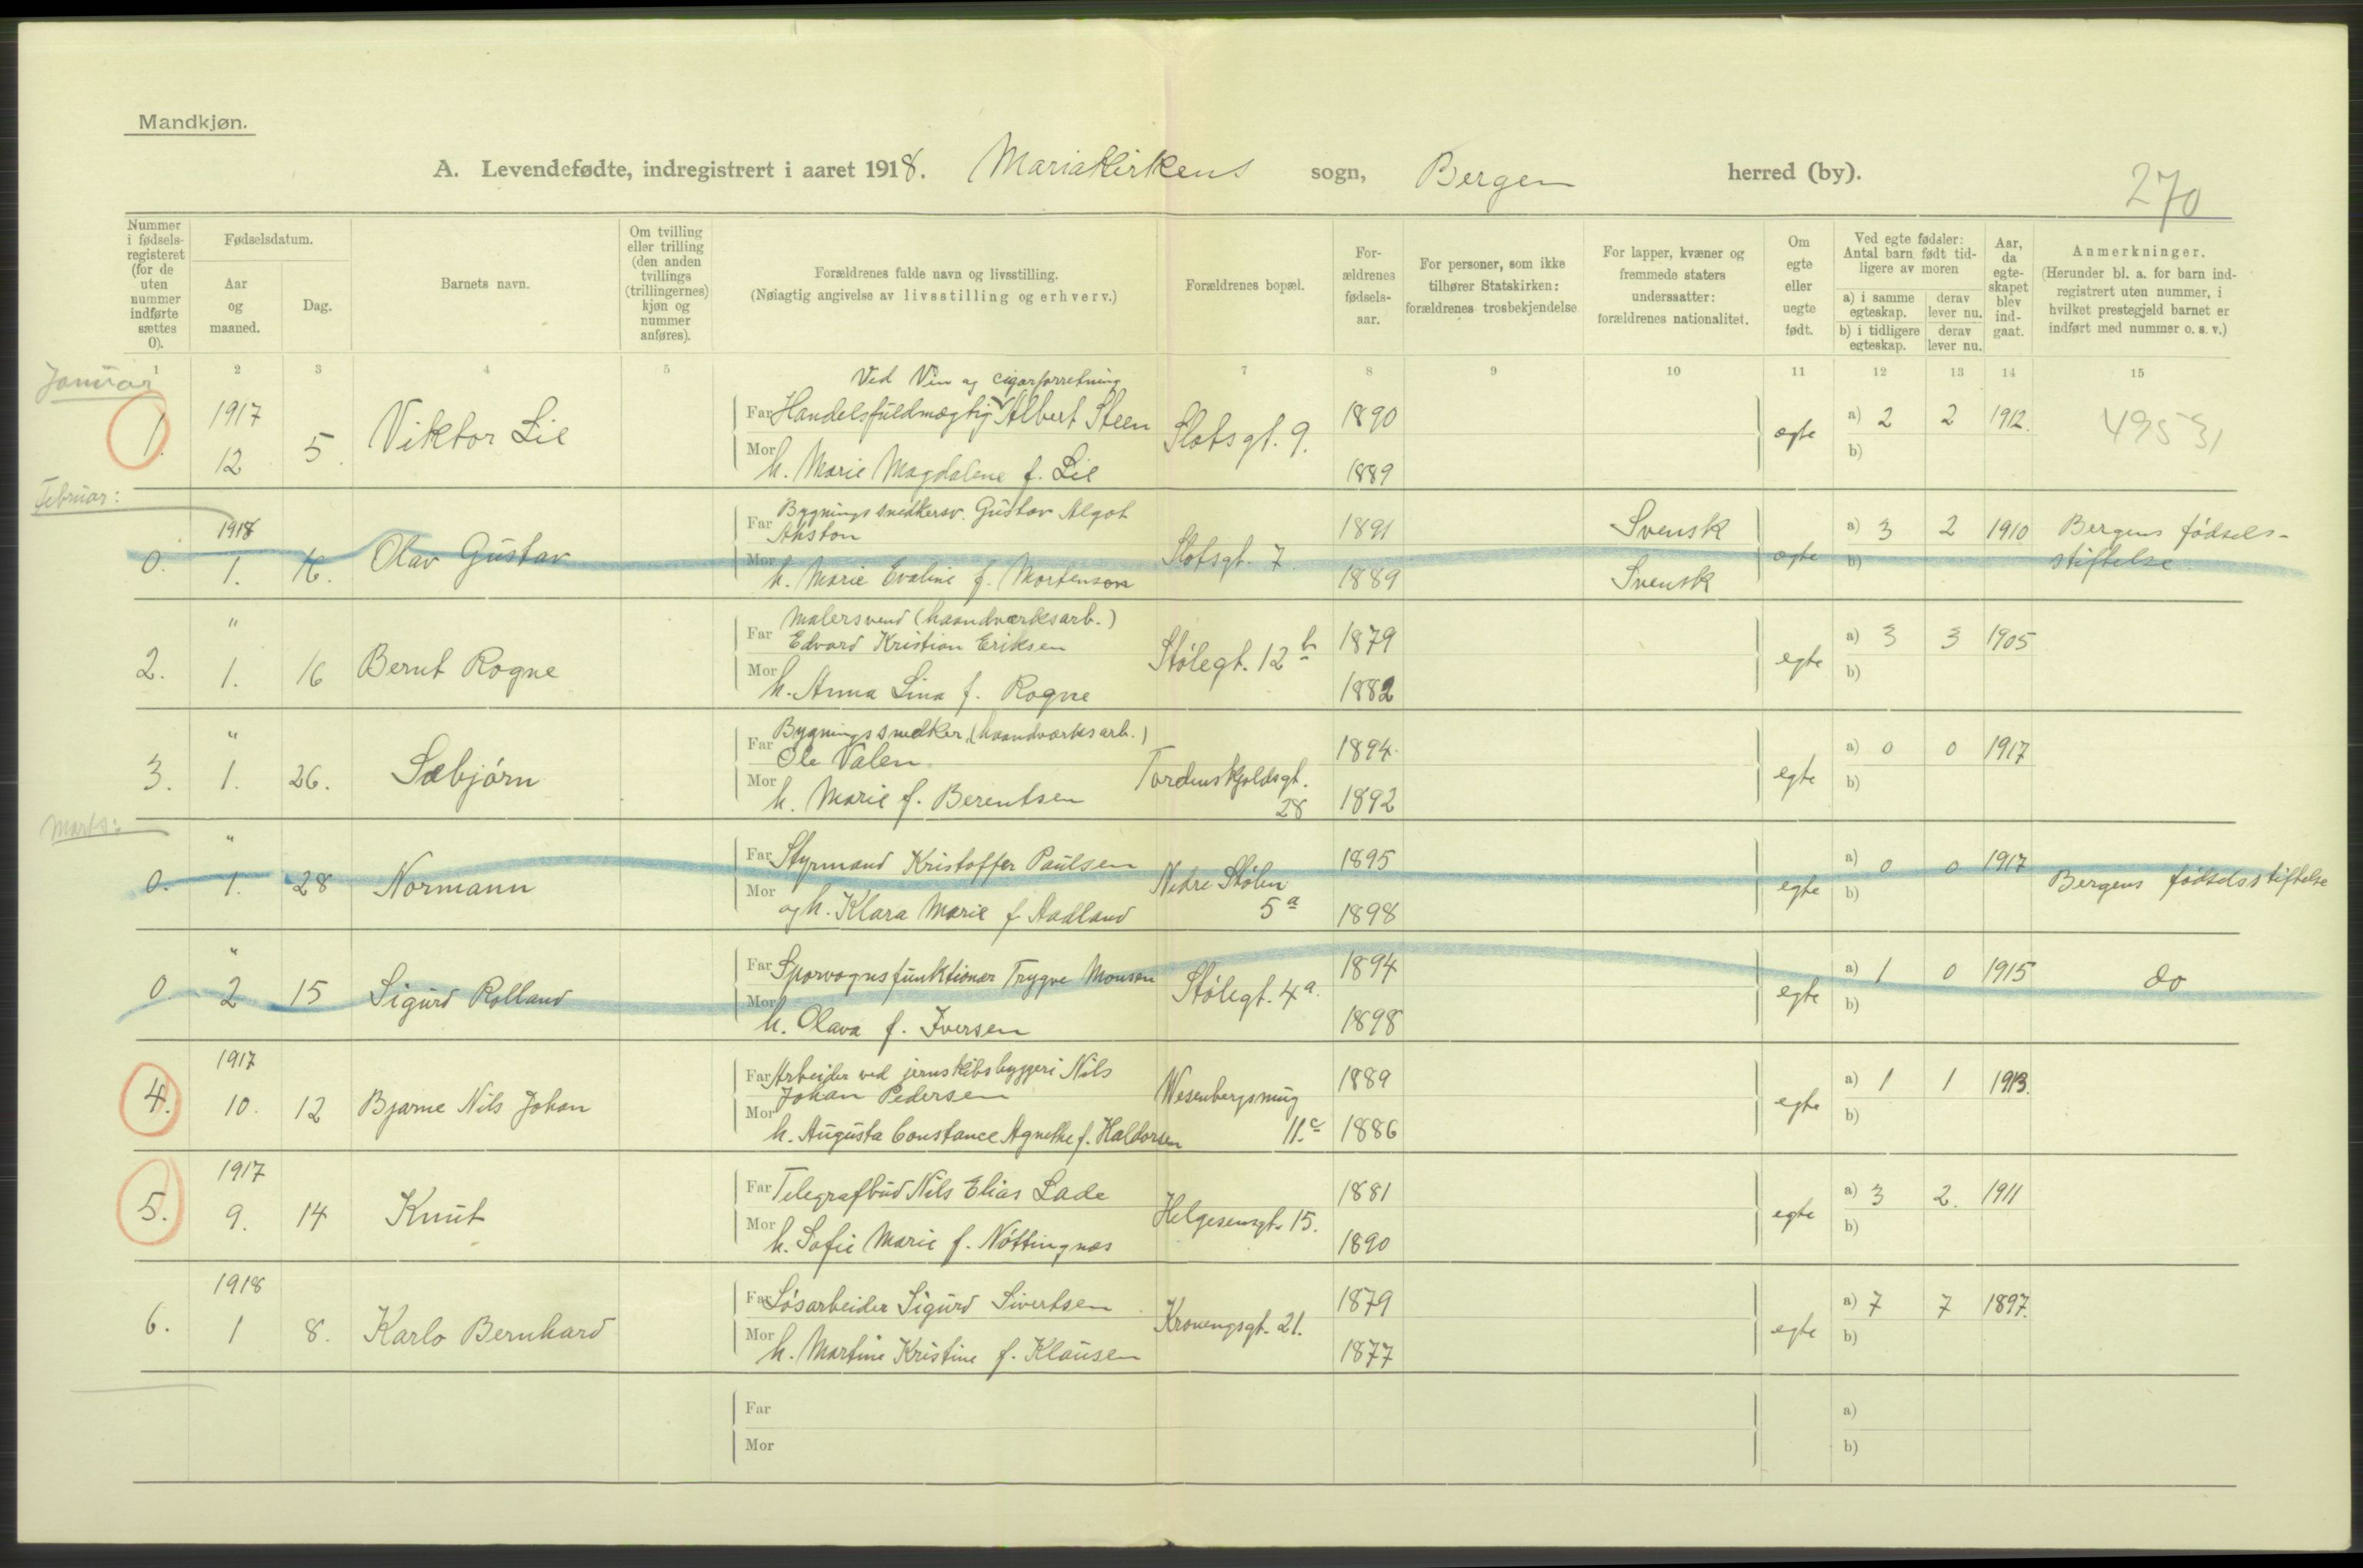 Mandkjøn.
A. Levendefødte, indregistrert i aaret 1918. Mariakirkens sogn, Bergen herred (by).
270
Nummer i fødsels-registeret (for de uten nummer indførte sættes 0).
Fødselsdatum.
Aar og maaned.
Dag.
Barnets navn.
Om tvilling eller trilling (den anden tvillings (trillingernes) kjøn og nummer anføres).
Forældrenes fulde navn og livsstilling.
(Nøiagtig angivelse av livsstilling og erhverv.)
Forældrenes bopæl.
For-ældrenes fødsels-aar.
For personer, som ikke tilhører Statskirken: forældrenes trosbekjendelse
For lapper, kvæner og fremmede staters undersaatter: forældrenes nationalitet.
Om egte eller uegte født.
Ved egte fødsler: Antal barn født tid-ligere av moren
a) i samme egteskap. derav lever nu.
b) i tidligere egteskap. derav lever nu.
Aar, da egte-skapet blev ind-gaat.
Anmerkninger.
(Herunder bl. a. for barn ind-registrert uten nummer, i hvilket prestegjeld barnet er indført med nummer o. s. v.)
1 2 3 4 5 7 8 9 10 11 12 13 14 15
Januar
Ved Vin og cigarforretning
1. 1917 12 5. Viktor Lie Far Handelsfuldmægtig Albert Steen Slotsgt. 9. 1890 egte a) 2 2 1912. 49531
Mor h. Marie Magdalene f. Lie 1889 b)
Februar:
0. 1918 1. 16. Olav Gustav Far Bygningssnedkersv. Gustav Algot
Ahston Slotsgt. 7. 1891 Svensk egte a) 3 2 1910 Bergens fødsels-
Mor h. Marie Evaline f. Mortenson 1889 Svensk b) stiftelse.
2. " 1. 16 Bernt Rogne Far Malersvend (haandverksarb.)
Edvard Kristian Eriksen Stølegt. 12 b 1879 egte a) 3 3 1905
Mor h. Anna Lina f. Rogne 1882 b)
3. " 1. 26. Sæbjørn Far Bygningssnedker (haandverksarb.)
Ole Valen Tordenskjoldsgt. 28 1894 egte a) 0 0 1917
Mor h. Marie f. Berentsen 1892 b)
Marts:
0. " 1. 28 Normann Far Styrmand Kristoffer Paulsen Nedre Stølen 5 a 1895 egte a) 0 0 1917 Bergens fødselsstiftelse
Mor og h. Klara Marie f. Aadland 1898 b)
0 " 2 15 Sigurd Rolland Far Sporvognsfunktionær Trygve Monsen Stølegt. 4 a. 1894 egte a) 1 0 1915 do
Mor h. Olava f. Iversen 1898 b)
4. 1917 10. 12 Bjarne Nils Johan Far Arbeider ved jernskibsbyggeri Nils
Johan Pedersen Wesenbergsmug 11. c 1889 egte a) 1 1 1913.
Mor h. Augusta Constance Agnethe f. Haldorsen 1886 b)
5. 1917 9. 14 Knut Far Telegrafbud Nils Elias Lade Helgesensgt. 15. 1881 egte a) 3 2. 1911
Mor h. Sofie Marie f. Nøttingnæs 1890 b)
6. 1918 1 8. Karlo Bernhard Far Løsarbeider Sigurd Sivertsen Krouengsgt. 21. 1879 egte a) 7 7 1897.
Mor h. Martine Kristine f. Klausen 1877 b)
Far a)
Mor b)